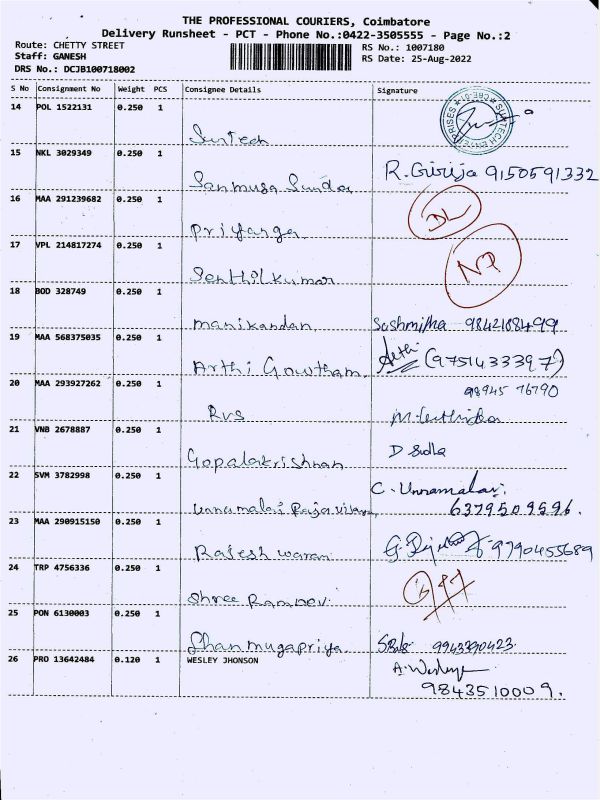 THE PROFESSIONAL COURIERS, Coimbatore
Delivery Runsheet - PCT - Phone No.:0422-3505555 - Page No.:2
Route: CHETTY STREET
RS No.: 1007180
Staff: GANESH
RS Date: 25-Aug-2022
DRS No.: DCJB100718002
S No Consignment No Weight PCS Consignee Details Signature
14 POL 1522131 0.250 1
Suntech
15 NKL 3029349 0.250 1
R. Girija 9150591332
Sanmuga Sundar
16 MAA 291239682 0.250 1
DL
Priyanga
17 VPL 214817274 0.250 1
NP
Senthil kumar
18 BOD 328749 0.250 1
manikandan Sushmitha 9842188499
19 MAA 568375035 0.250 1
Arthi Gowtham Arthi (9751433397)
20 MAA 293927262 0.250 1 98945 76790
Rvs
21 VNB 2678887 0.250 1
D Sudha
Gopalakrishnan
22 SVM 3782998 0.250 1
C. Unnamalai
6379509596.
23 MAA 290915150 0.250 1
Rajesh waran 9790455689
24 TRP 4756336 0.250 1
Shree Ramdev
25 PON 6130003 0.250 1
Shanmugapriya 9943390423
26 PRO 13642484 0.120 1 WESLEY JHONSON
A. Wesley
9843510009.